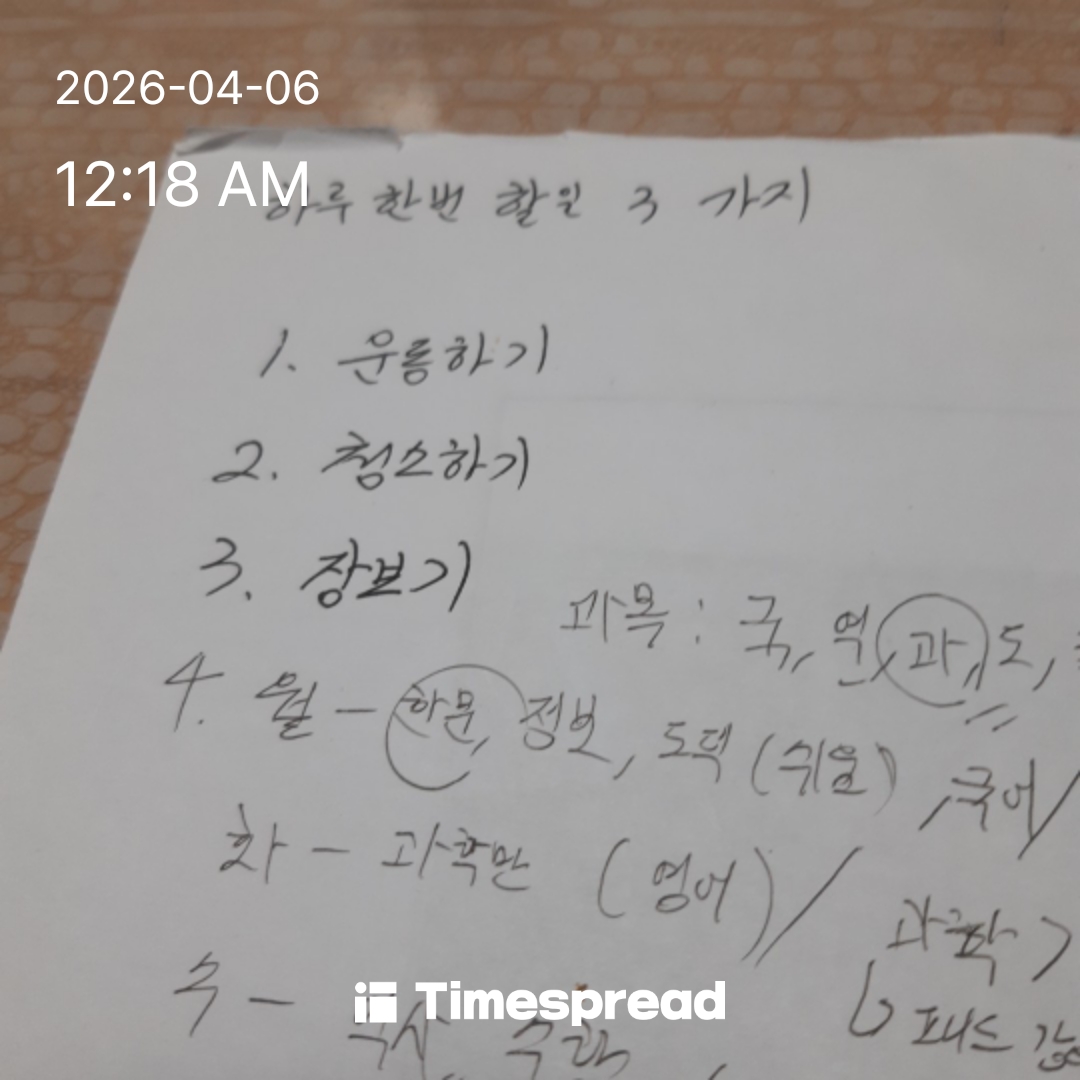 2026-04-06
12:18 AM
하루 한번 할일 3 가지
1. 운동하기
2. 청소하기
3. 장보기
과목 : 국, 역, 과, 도,
4. 월 - 한문, 정보, 도덕 (쉬움) , 국어/
화 - 과학만 (영어) / 과학
수 - 수학,
Timespread